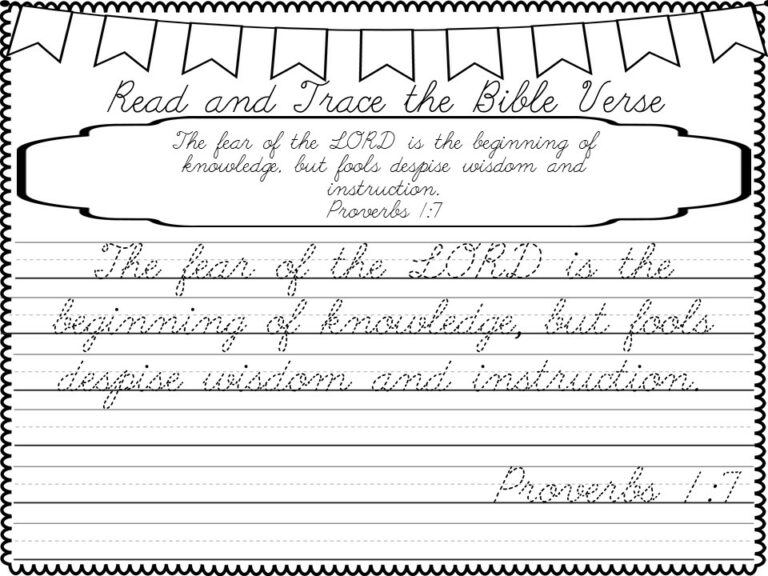 Read and Trace the Bible Verse
The fear of the LORD is the beginning of
knowledge, but fools despise wisdom and
instruction.
Proverbs 1:7
The fear of the LORD is the
beginning of knowledge, but fools
despise wisdom and instruction.
Proverbs 1:7